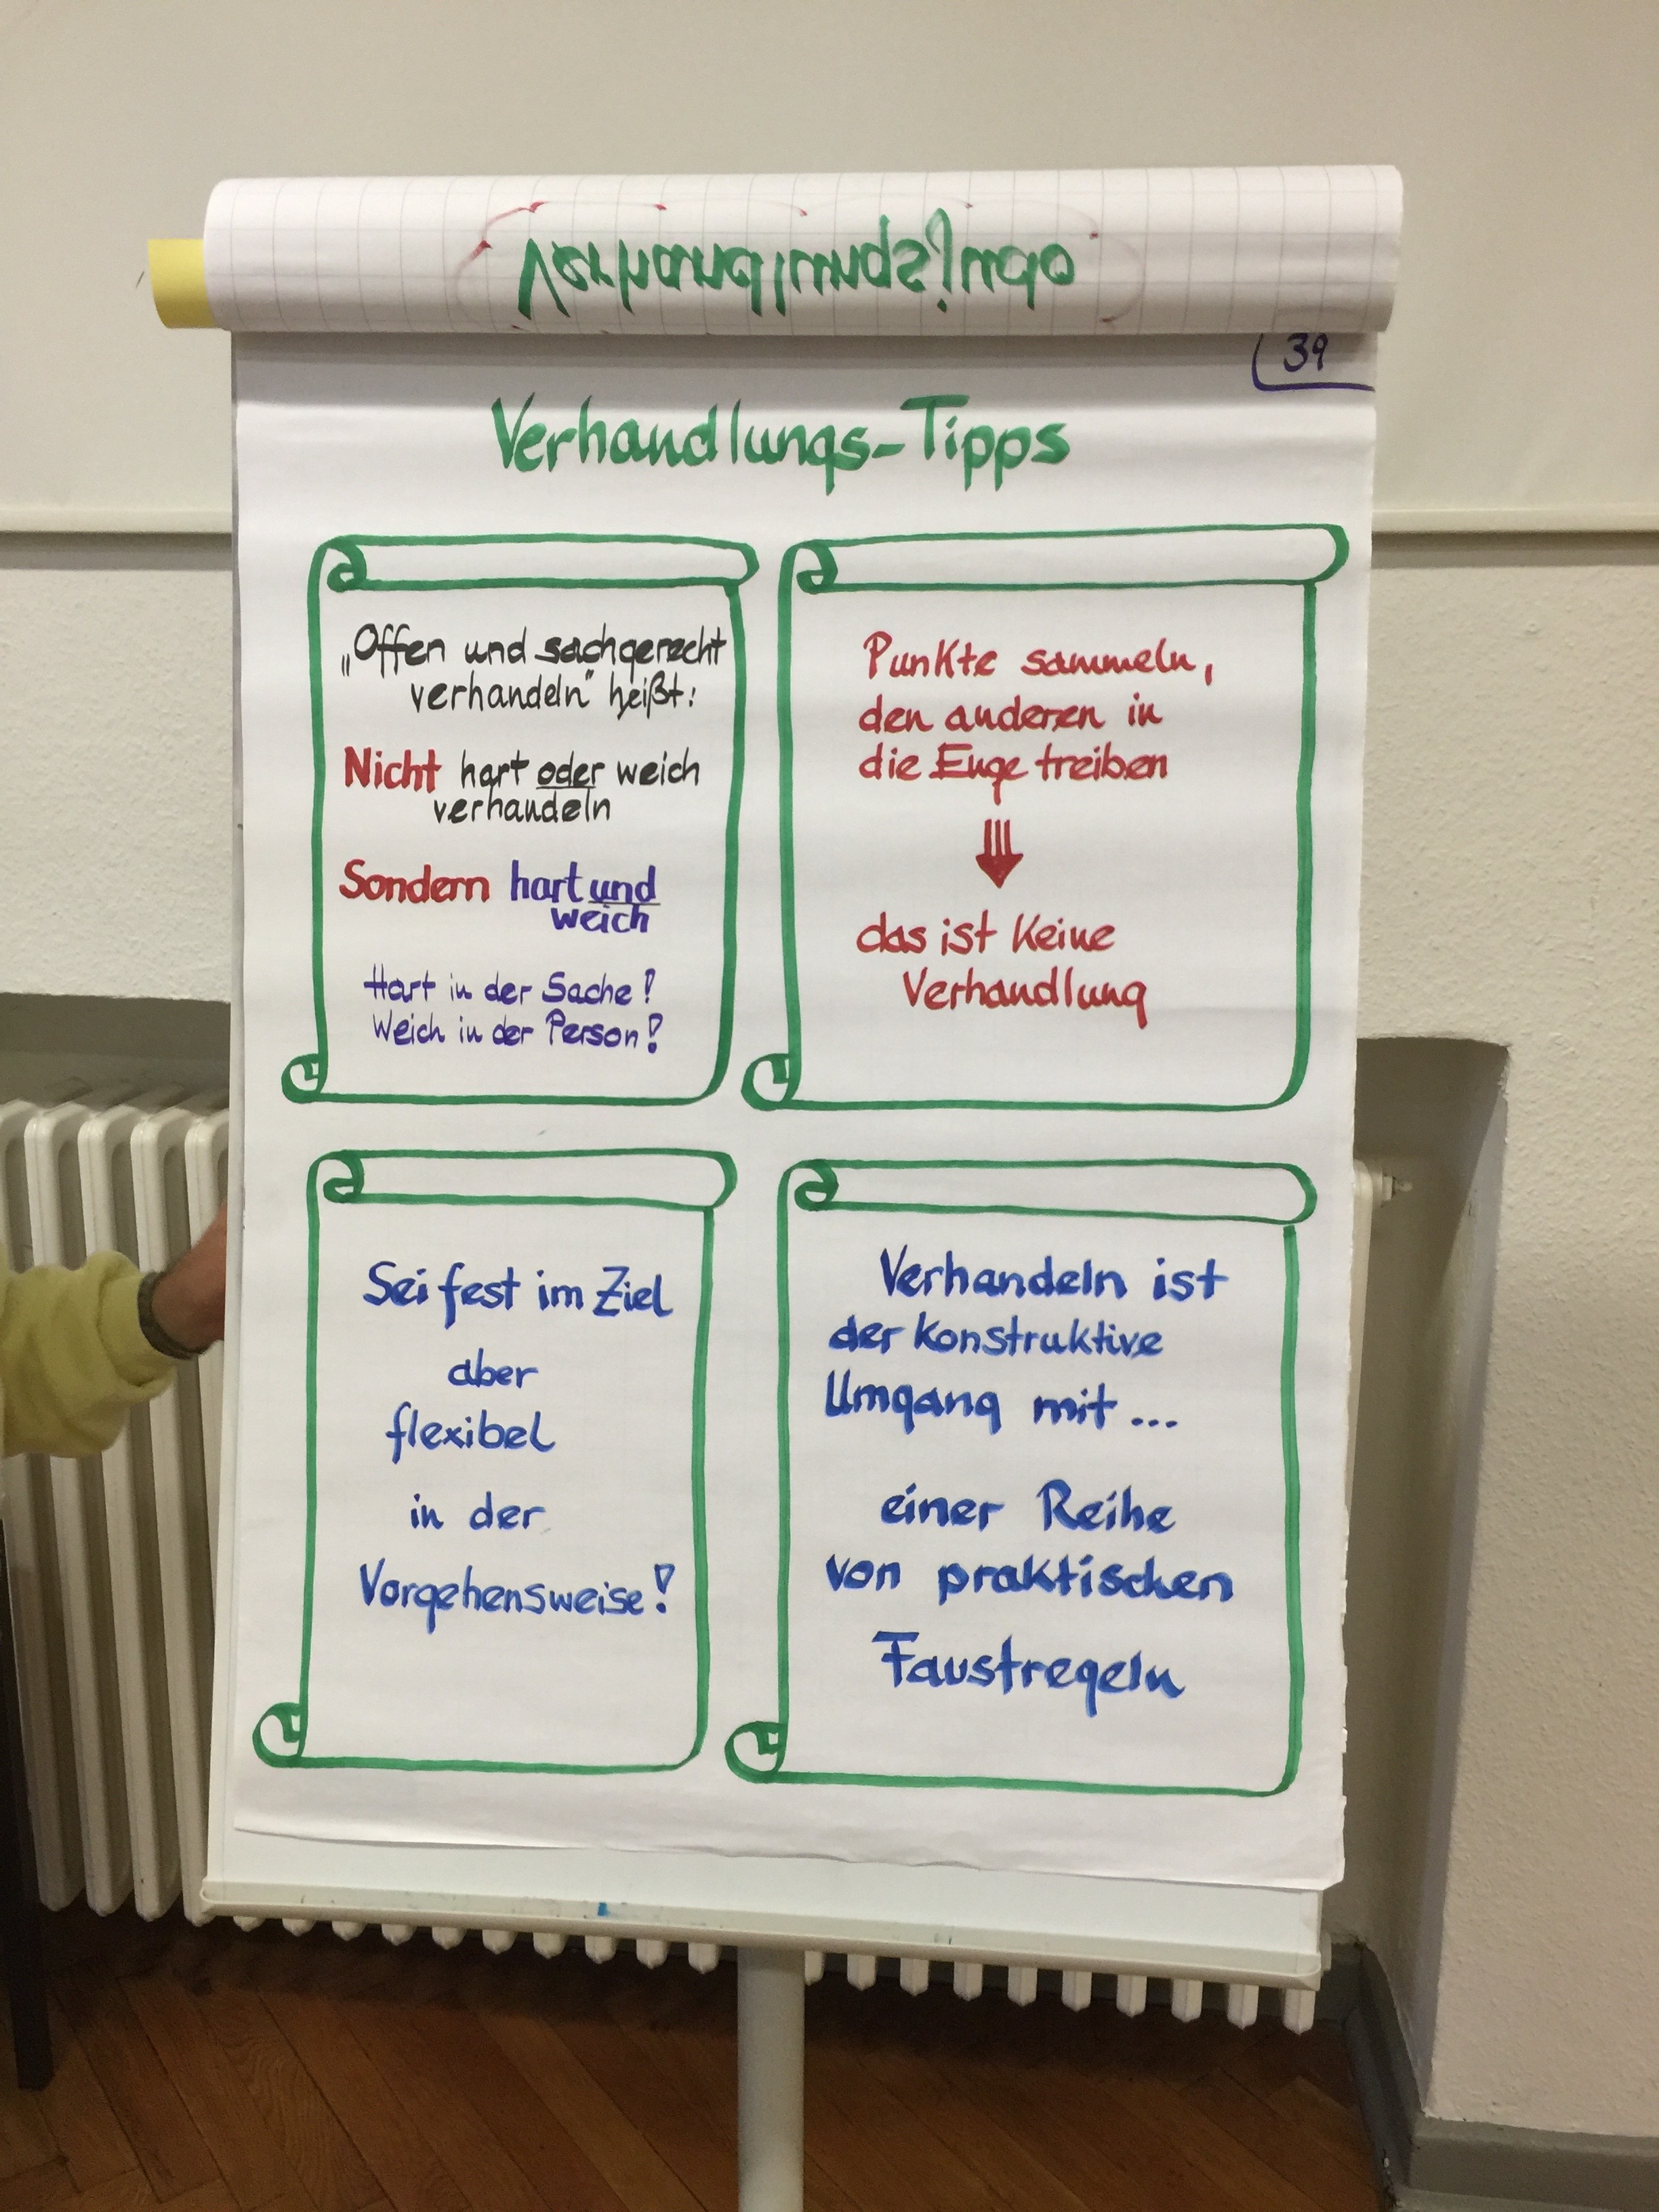 39
Verhandlungs-Tipps
„Offen und sachgerecht
verhandeln" heißt:
Nicht hart oder weich
verhandeln
Sondern hart und
weich
Hart in der Sache!
Weich in der Person!
Punkte sammeln,
den anderen in
die Enge treiben
das ist keine
Verhandlung
Sei fest im Ziel
aber
flexibel
in der
Vorgehensweise!
Verhandeln ist
der konstruktive
Umgang mit...
einer Reihe
von praktischen
Faustregeln